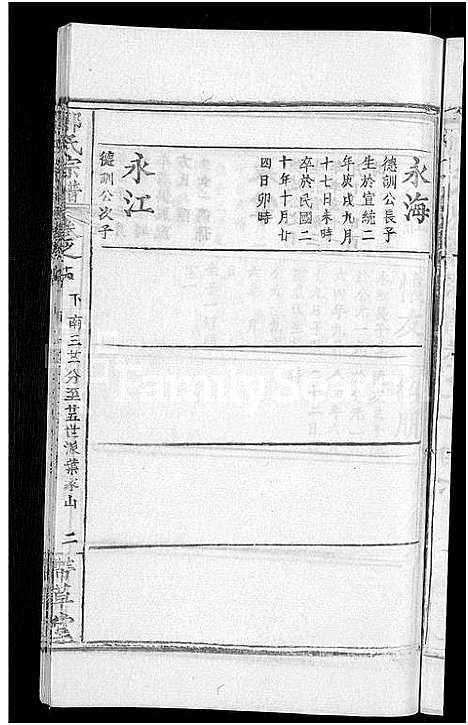 永海
德訓公長子
生於宣統二
年庚戌九月
十七日未時
卒於民國二
十年十月廿
四日卯時
永江
德訓公次子
氏宗譜
下南三廿分至廿五世派葉家山
二
草堂
FamilySearch